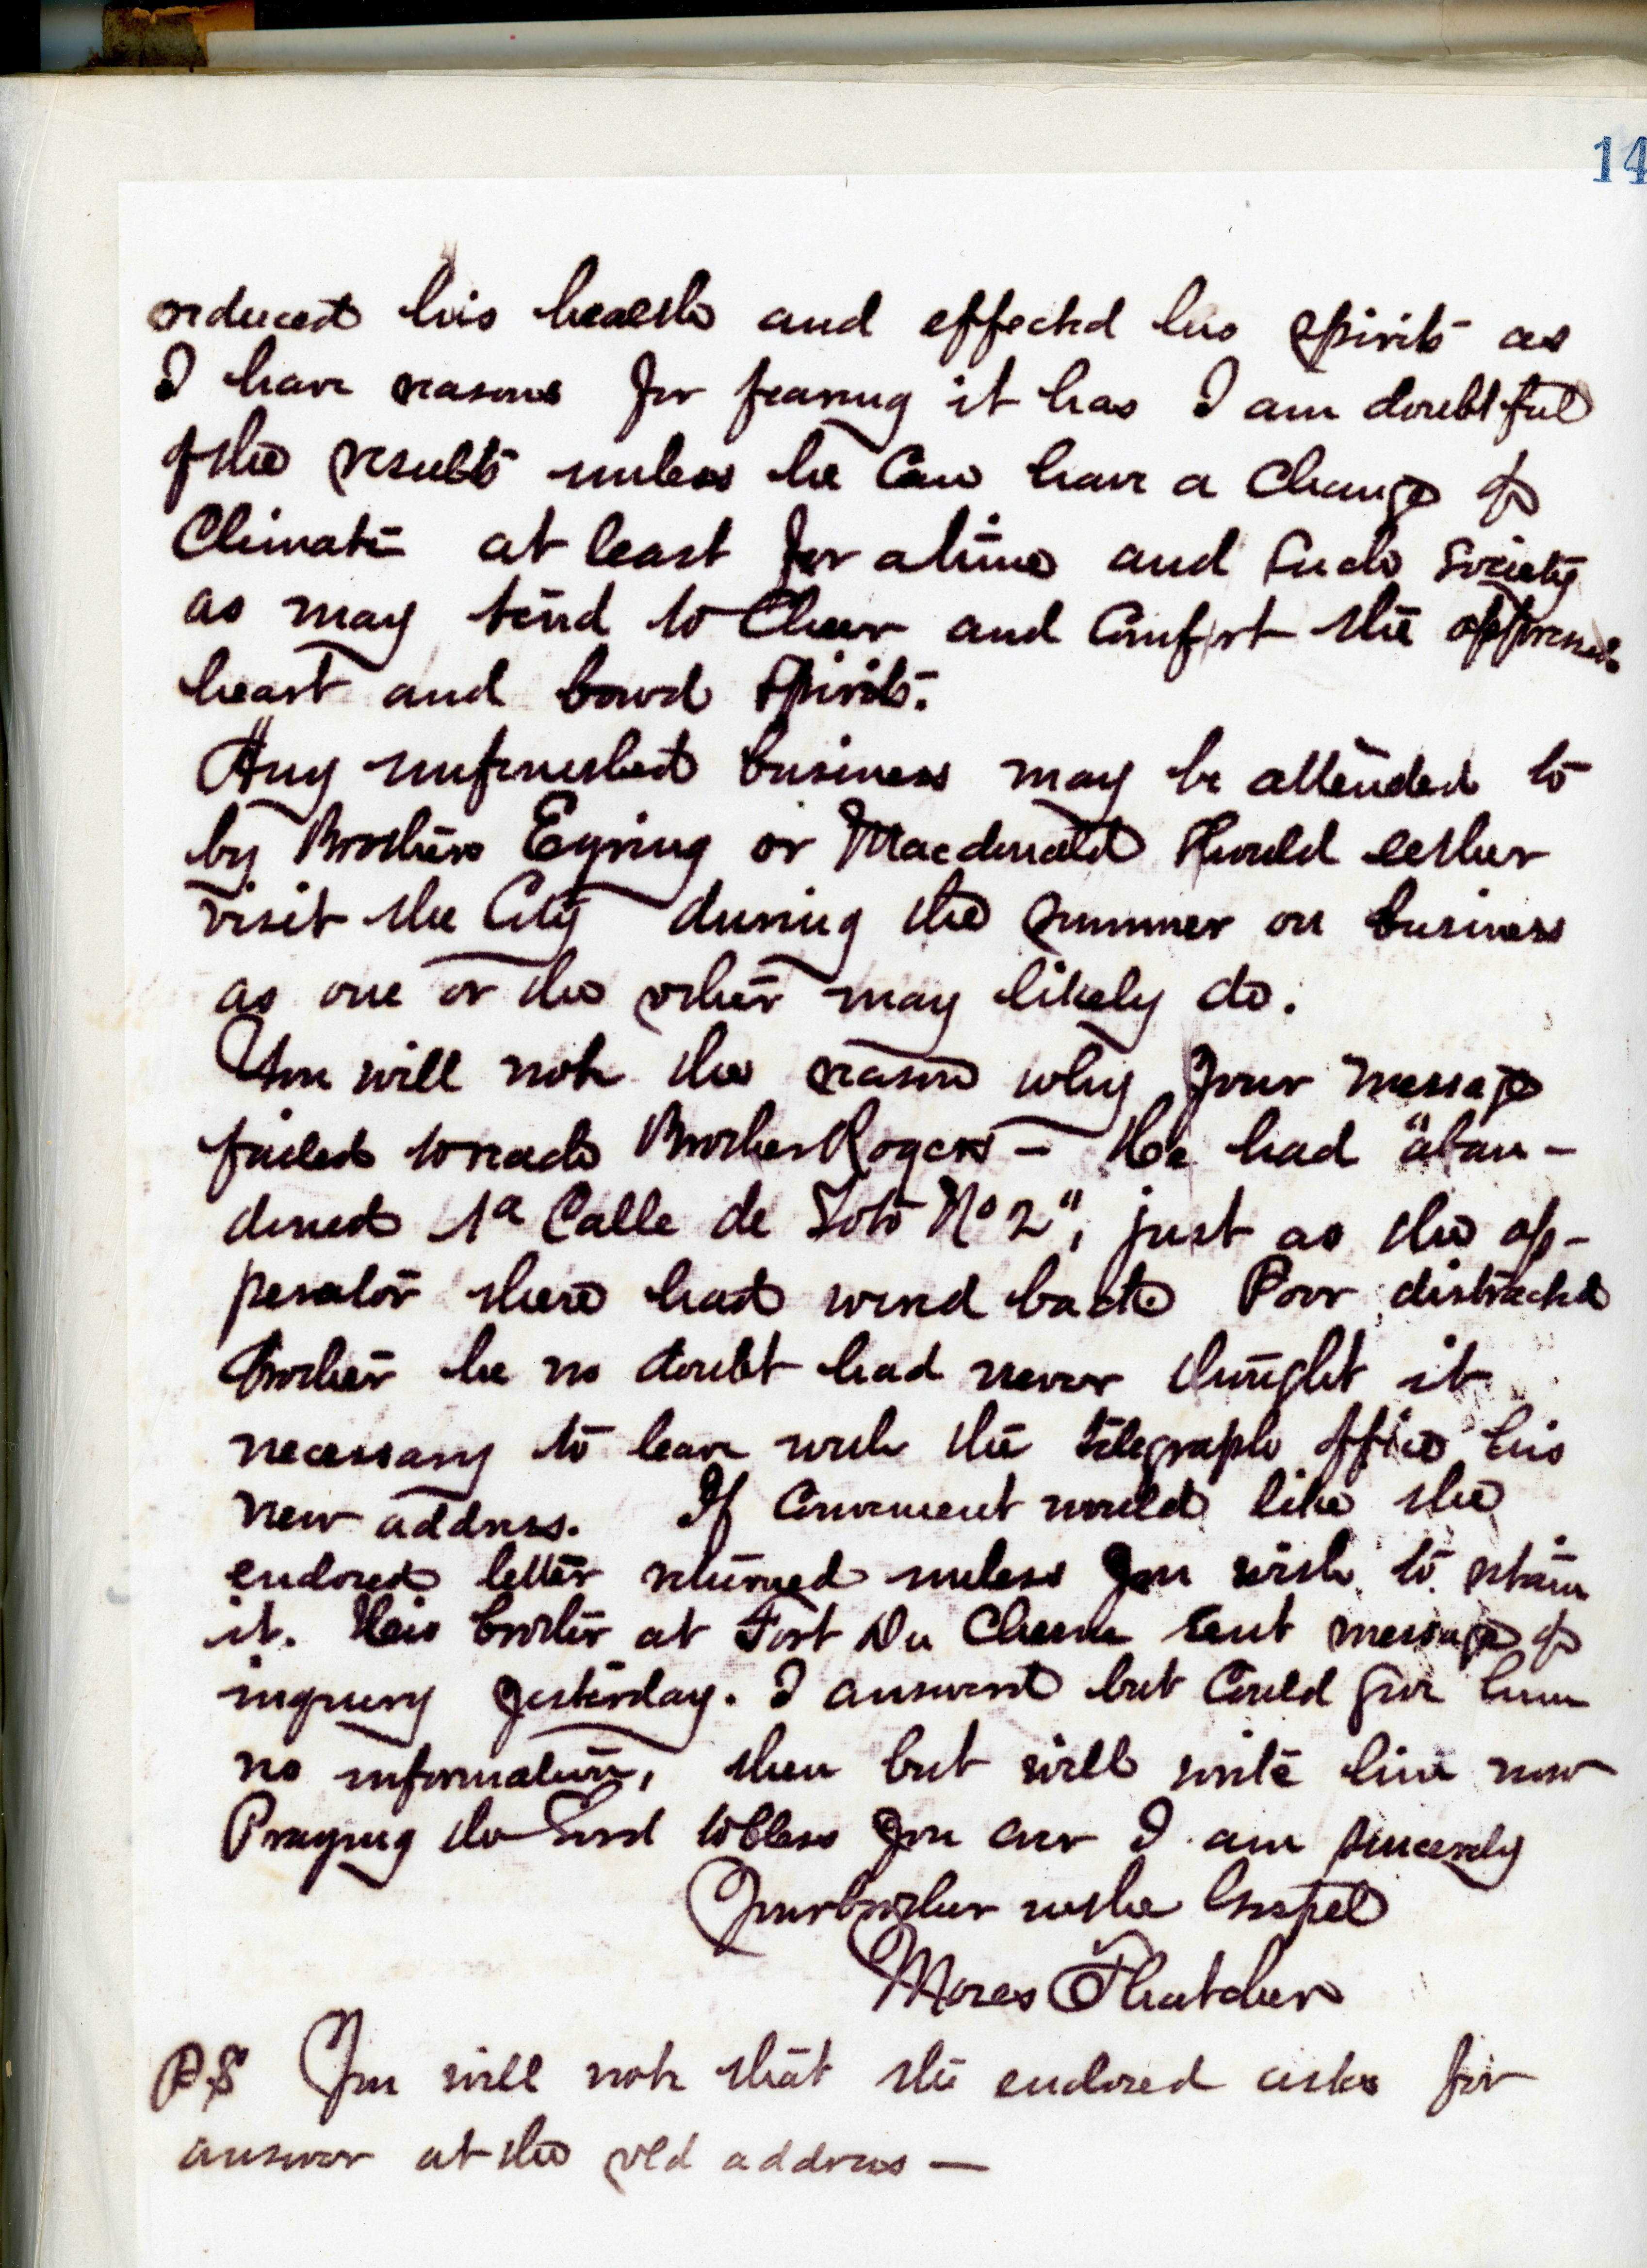 14
reduced his health and effected his spirits as
I have reasons for fearing it has I am doubtful
of the results unless he can have a change of
Climate at least for a time and such society
as may tend to Cheer and Comfort the oppressed
heart and bowd spirits.
Any unfinished business may be attended to
by Brothers Eyring or Macdonald should either
visit the City during the summer on business
as one or the other may likely do.
You will note the reason why your message
failed to reach Brother Rogers - He had "aban-
doned 1a Calle de Soto No 2", just as the op-
perator there had wired back Poor, distracted
Brother he no doubt had never thought it
necessary to leave with the telegraph office his
new address. If Convenient would like the
enclosed letter returned unless you wish to retain
it. His brother at Fort Du Chesne sent message of
inquery yesterday. I answerd but Could give him
no information, then but will write him now
Praying the Lord to bless you ever I am sincerely
Your brother in the Gospel
Moses Thatcher
P.S You will note that the enclosed asks for
answer at the old address —